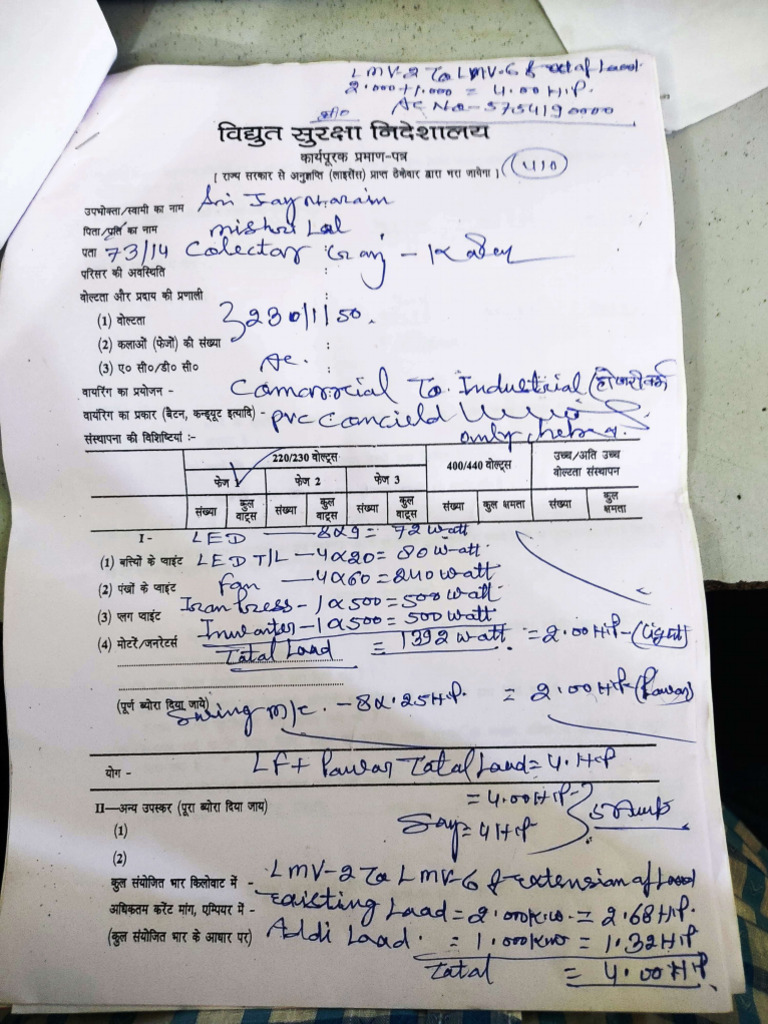 LMV-2 To LMV-6 & Ext of Load.
2.000+1.000 = 4.00 H.P.
Ac No - 5754190000
विद्युत सुरक्षा निदेशालय
कार्यपूरक प्रमाण-पत्र
[ राज्य सरकार से अनुज्ञप्ति (लाइसेंस) प्राप्त ठेकेदार द्वारा भरा जायेगा ]
उपभोक्ता/स्वामी का नाम Sri Jaynarain
पिता/पति का नाम mishri Lal
पता 73/14 Colector Ganj -
परिसर की अवस्थिति :
वोल्टता और प्रदाय की प्रणाली :
(1) वोल्टता 230/1/50.
(2) कलाओं (फेजों) की संख्या :
(3) ए० सी०/डी० सी० : Ac.
वायरिंग का प्रयोजन - Comarrcial To Industrial (होजरी वर्क
वायरिंग का प्रकार (बैटन, कन्ड्यूट इत्यादि) - PVC Concield
संस्थापना की विशिष्टियां :- only
220/230 वोल्ट्स 400/440 वोल्ट्स उच्च/अति उच्च वोल्टता संस्थापन
फेज 1 फेज 2 फेज 3
संख्या कुल वाट्स संख्या कुल वाट्स संख्या कुल वाट्स संख्या कुल क्षमता संख्या कुल क्षमता
I- LED — 8x9 = 72 watt
(1) बत्तियों के प्वाइंट LED T/L - 4x20 = 80 watt
(2) पंखों के प्वाइंट Fan — 4x60 = 240 watt
(3) प्लग प्वाइंट Iran Press - 1x500 = 500 watt
(4) मोटरें/जनरेटर्स Inwarter - 1x500 = 500 watt
Total Load = 1392 watt = 2.00 H.P - (Light)
(पूर्ण ब्योरा दिया जाये)
Swing M/c. - 8x.25 H.P. = 2.00 H.P - (Pawar)
योग - LF + Pawar Total Load = 4. H.P
= 4.00 H.P
II—अन्य उपस्कर (पूरा ब्योरा दिया जाय)
Say = 4 H.P
(1)
(2)
कुल संयोजित भार किलोवाट में - LMV-2 To LMV-6 & extension of Load
अधिकतम करेंट मांग, एम्पियर में - Existing Load = 2.000 KW = 2.68 H.P.
(कुल संयोजित भार के आधार पर) Addi Load. = 1.000 KW = 1.32 H.P
Total = 4.00 H.P.